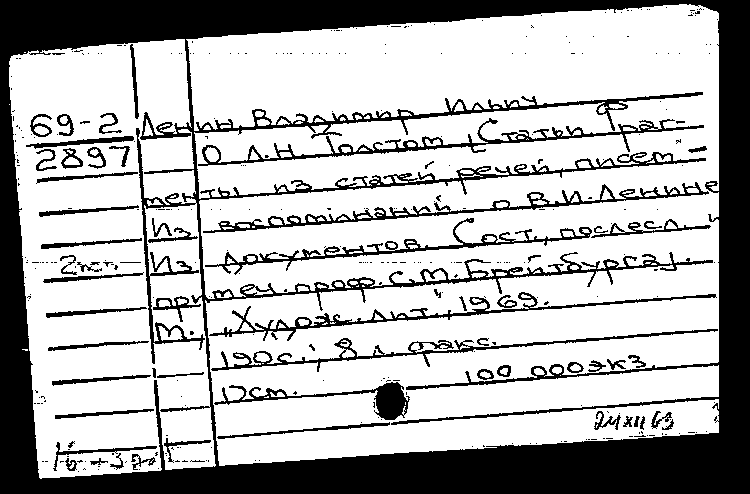 69-2 Ленин, Владимир Ильич.
2897 О Л.Н. Толстом [Статьи. Фраг-
менты из статей, речей, писем
Из воспоминаний о В.И. Ленине
2 экз. Из документов. Сост., послесл. и
примеч. проф. С.М. Брейтбурга].
М., „Худож. лит.", 1969.
190 с.; 8 л. факс.
17 см. 100 000 экз.
24 XII 69
16